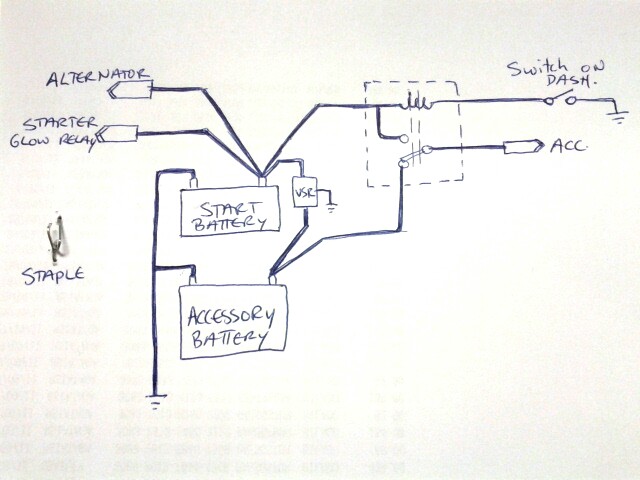 ALTERNATOR
STARTER
GLOW RELAY
START
BATTERY
VSR
ACCESSORY
BATTERY
STAPLE
Switch ON
DASH.
ACC.